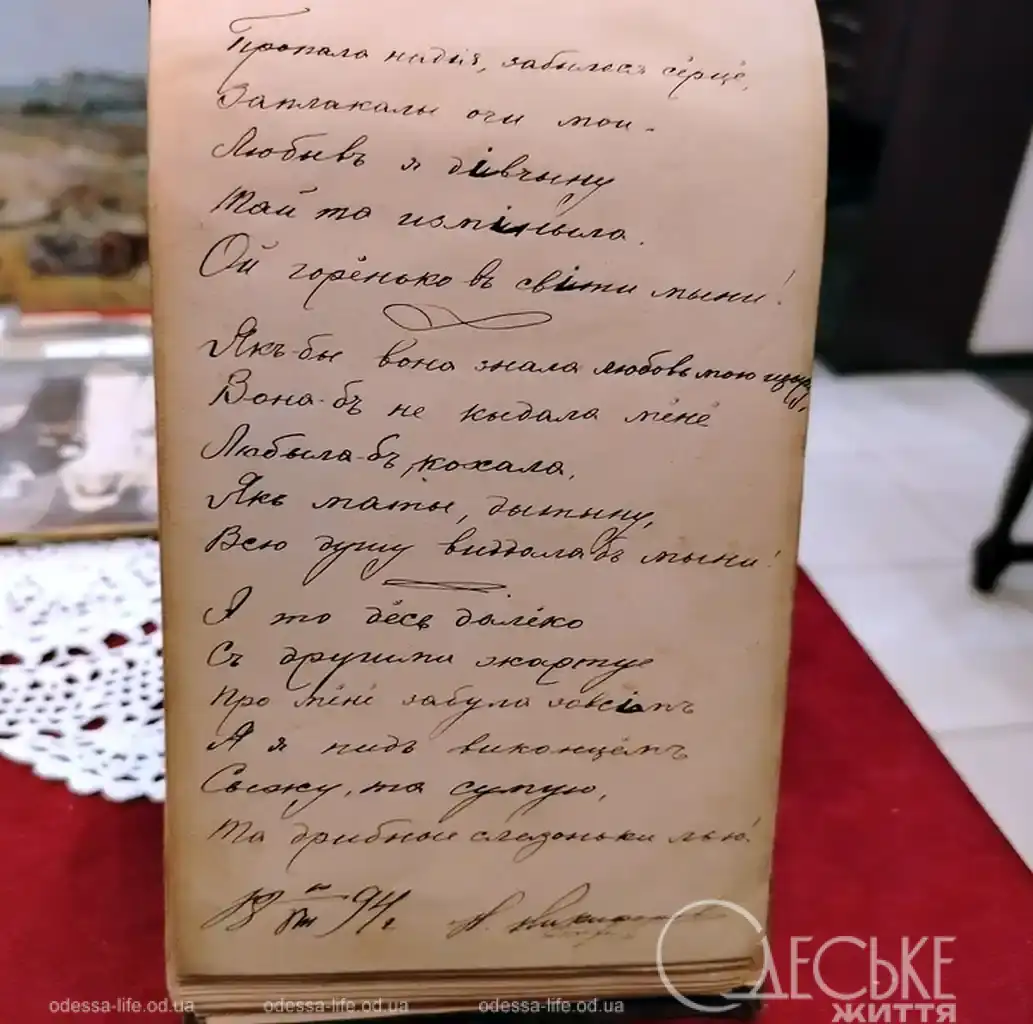 Пропала надія, забылося сёрцё,
Заплакалы очи мои.
Любывъ я дівчыну
Тай та изміныла.
Ой горёнько въ світи мыни!
Якъ-бы вона знала любовь мою щыру,
Вона-бъ не кыдала мёнё
Любыла-бъ, кохала,
Якъ маты, дытыну,
Всю душу виддала бъ мыни!
А то дёсь далёко
Съ другими жартуе
Про мёнё забула зовсімъ
А я пидъ виконцёмъ
Сыжу, та сумую,
Та дрибные слезоньки лью!
94 г.
ОДЕСЬКЕ
ЖИТТЯ
odessa-life.od.ua odessa-life.od.ua odessa-life.od.ua